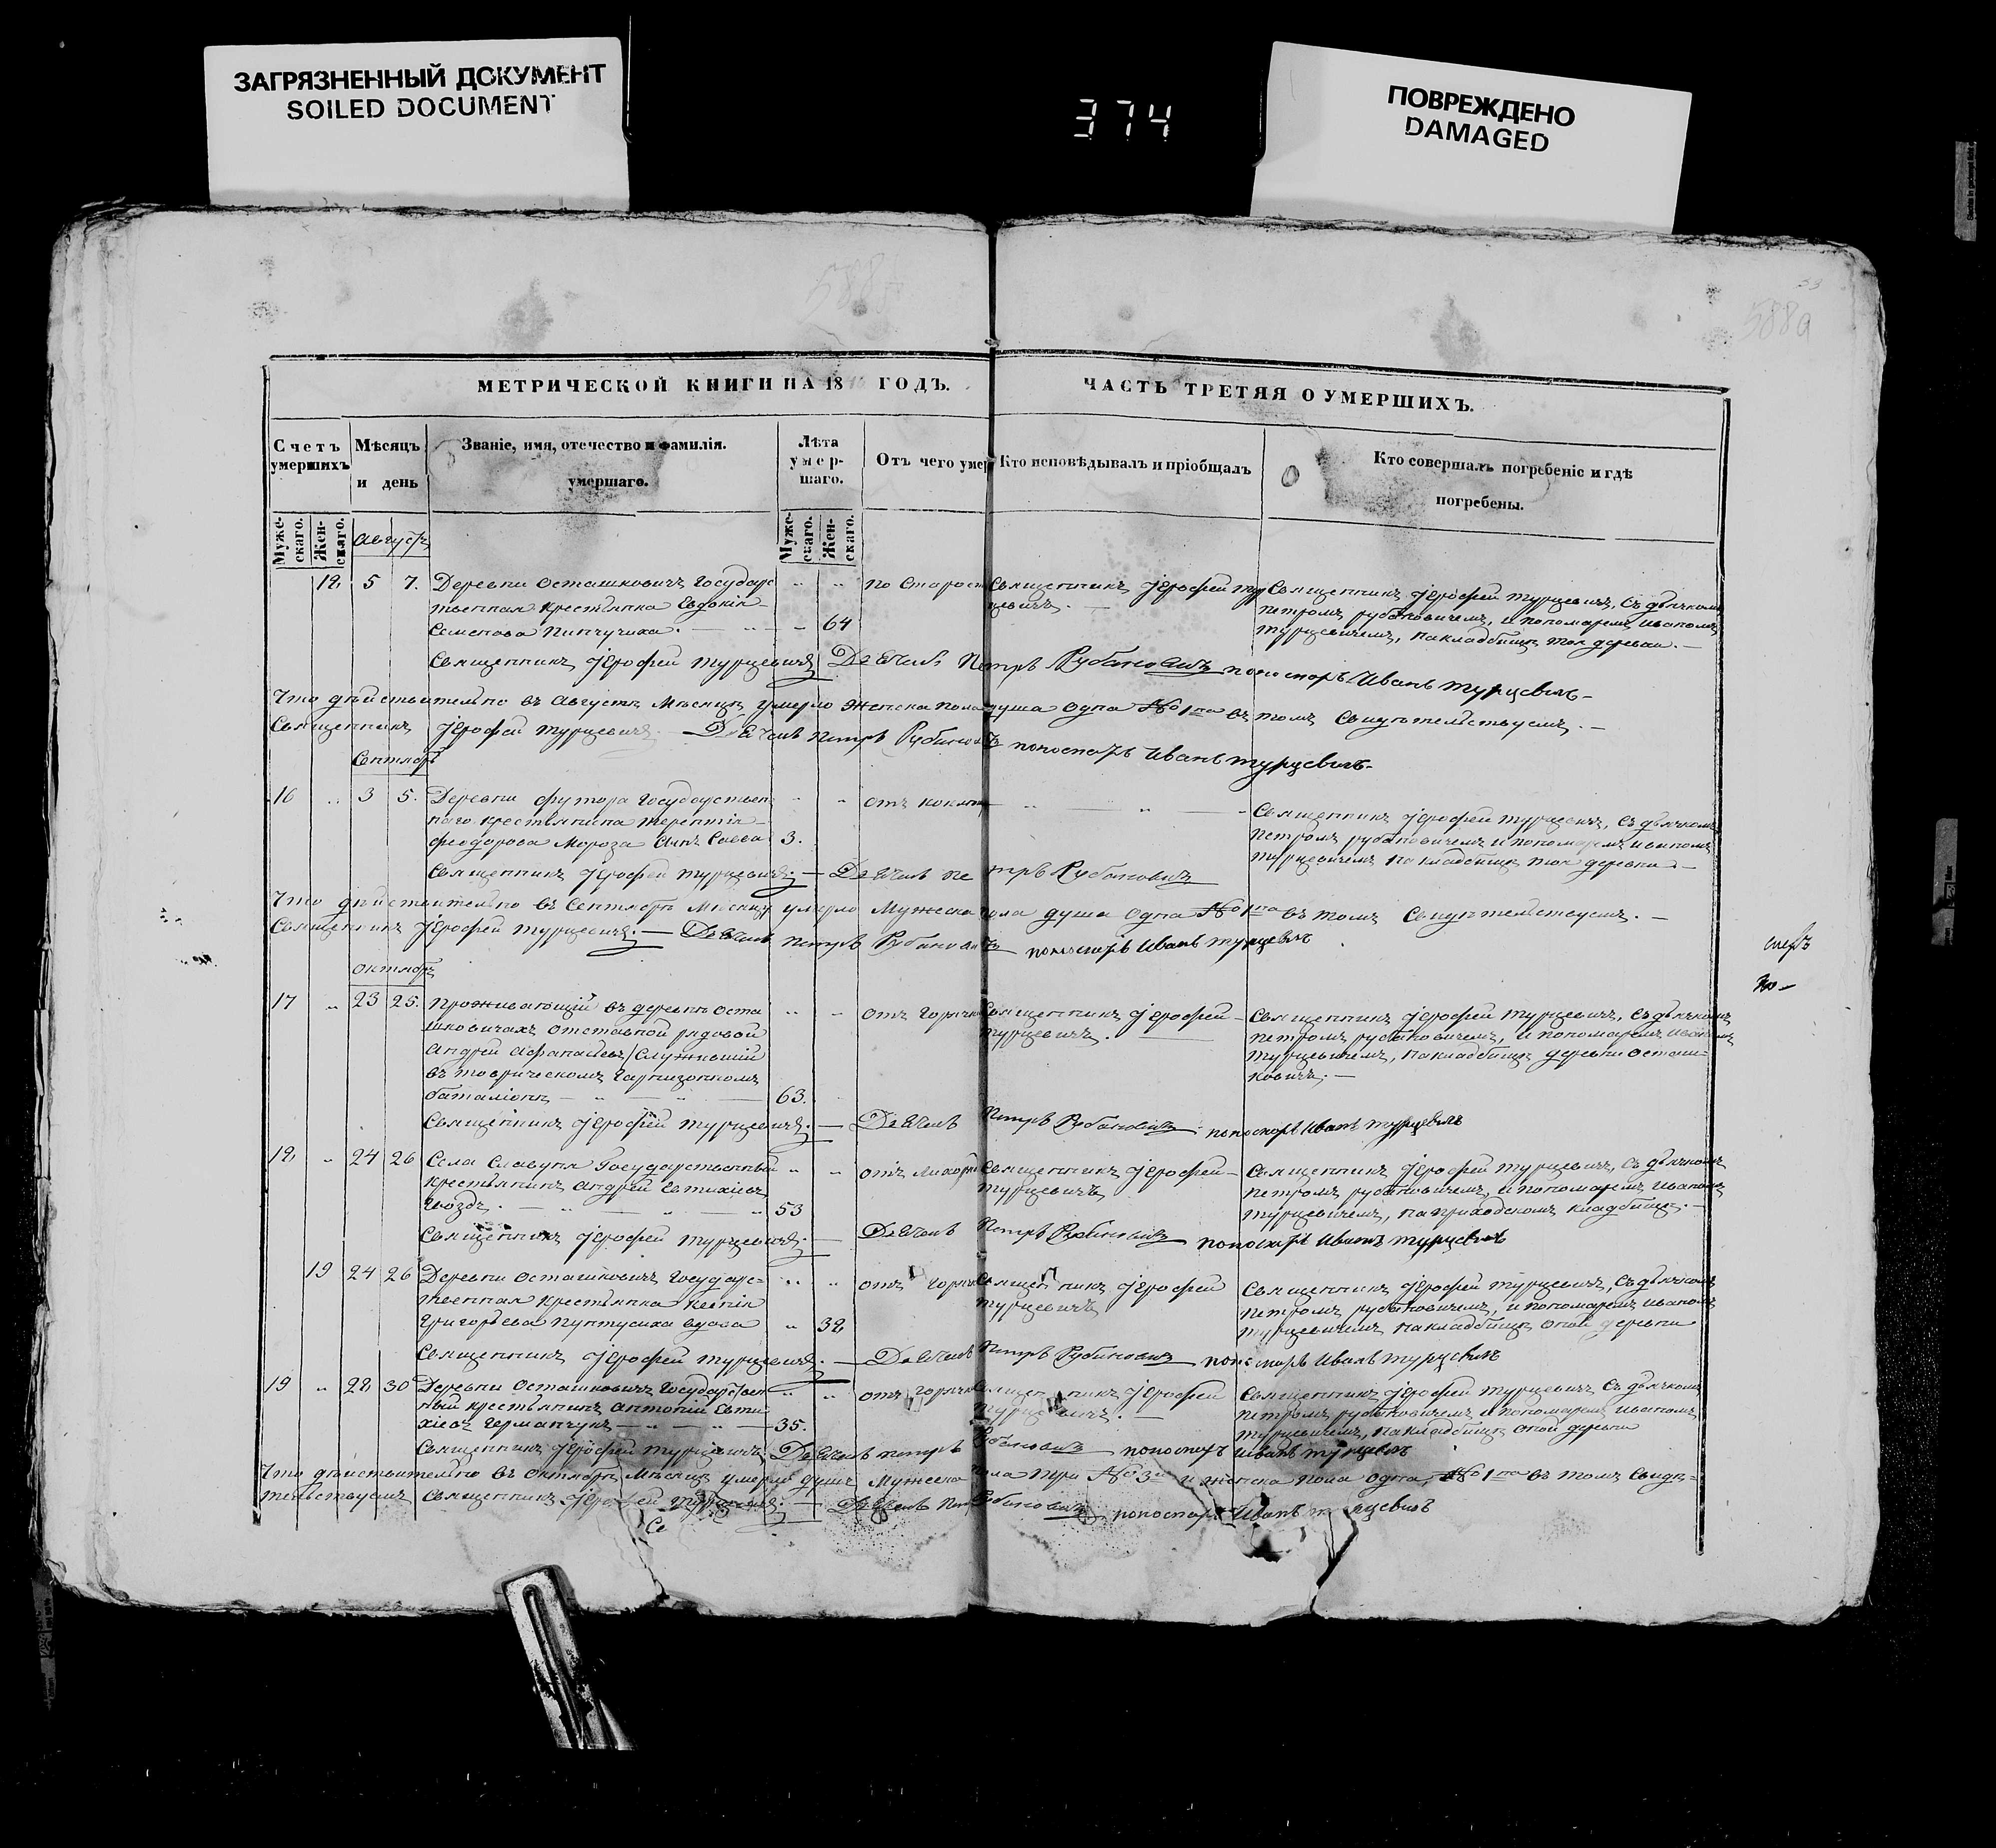 ЗАГРЯЗНЕННЫЙ ДОКУМЕНТ
SOILED DOCUMENT
374
ПОВРЕЖДЕНО
DAMAGED
588а
МЕТРИЧЕСКОЙ КНИГИ НА 18 ГОДЪ.
ЧАСТЬ ТРЕТЯЯ О УМЕРШИХЪ.
Счетъ умершихъ
Мѣсяцъ и день
Званіе, имя, отечество и фамилія. умершаго.
Лѣта умер-
шаго.
Отъ чего умер
Кто исповѣдывалъ и пріобщалъ
Кто совершалъ погребеніе и гдѣ
погребены.
Муже-
скаго.
Жен-
скаго.
Августъ
Муже-
скаго.
Жен-
скаго.
5 7. Деревни Осташковичъ Государс
твенная крестьянка Евдокія
Семенова Пинчучиха. 64
по Старост
Священникъ Іерофей Тур
цевичъ.
Священникъ Іерофей Турцевичъ, съ дьячкомъ
Петромъ Рубановичемъ, и пономаремъ Иваномъ
Турцевичемъ, на кладбищѣ той деревни.
Священникъ Іерофей Турцевичъ Дьячекъ Петръ Рубановичъ пономаръ Иванъ Турцевичъ
Что дѣйствительно въ Августѣ мѣсяцѣ умерло женска пола душа одна № 1на въ томъ свидѣтельствуемъ.
Священникъ Іерофей Турцевичъ. Дьячекъ Петръ Рубановичъ пономаръ Иванъ Турцевичъ
Сентябрь
16 3 5. Деревни футора Государствен
наго крестьянина Терентія
Феодорова Мороза сынъ Савва 3.
отъ коклюш
Священникъ Іерофей Турцевичъ, съ дьячкомъ
Петромъ Рубановичемъ и пономаремъ Иваномъ
Турцевичемъ на кладбищѣ той деревни
Священникъ Іерофей Турцевичъ. Дьячекъ Петръ Рубановичъ
Что дѣйствительно въ Сентябрѣ мѣсяцѣ умерло мужеска пола душа одна № 1на въ томъ свидѣтельствуемъ.
Священникъ Іерофей Турцевичъ. Дьячекъ Петръ Рубановичъ пономаръ Иванъ Турцевичъ
Октябрь
17 23 25. Проживающій въ деревнѣ Оста
шковичахъ отставной рядовой
Андрей Афанасьевъ служившій
въ Таврическомъ гарнизонномъ
баталіонѣ 63.
отъ горячк
Священникъ Іерофей
Турцевичъ.
Священникъ Іерофей Турцевичъ, съ дьячкомъ
Петромъ Рубановичемъ, и пономаремъ Иваномъ
Турцевичемъ, на кладбищѣ деревни Осташ-
ковичъ.
Священникъ Іерофей Турцевичъ. Дьячекъ Петръ Рубановичъ пономаръ Иванъ Турцевичъ
24 26 Села Славуня Государственный
крестьянинъ Андрей Евтихіевъ
Гвоздь. 53
Священникъ Іерофей
Турцевичъ
Священникъ Іерофей Турцевичъ, съ дьячкомъ
Петромъ Рубановичемъ, и пономаремъ Иваномъ
Турцевичемъ, на приходскомъ кладбищѣ.
Священникъ Іерофей Турцевичъ. Дьячекъ Петръ Рубановичъ пономаръ Иванъ Турцевичъ
19 24 26 Деревни Осташковичъ Государс-
твенная крестьянка Ксенія
Григорьева вдова
отъ горяч
Священникъ Іерофей
Турцевичъ
Священникъ Іерофей Турцевичъ, съ дьячкомъ
Петромъ Рубановичемъ, и пономаремъ Иваномъ
Турцевичемъ на кладбищѣ оной деревни
Священникъ Іерофей Турцевичъ. Дьячекъ Петръ Рубановичъ пономаръ Иванъ Турцевичъ
19 30 Деревни Осташковичъ Государствен
ный крестьянинъ Антоній Евти-
хіевъ Германчукъ 35.
отъ горячк
Священникъ Іерофей
Турцевичъ.
Священникъ Іерофей Турцевичъ съ дьячкомъ
Петромъ Рубановичемъ и пономаремъ Иваномъ
Турцевичемъ, на кладбищѣ оной деревни
Священникъ Іерофей Турцевичъ. Дьячекъ Петръ Рубановичъ пономаръ Иванъ Турцевичъ
Что дѣйствительно въ Октябрѣ мѣсяцѣ умерло душъ мужеска пола три № 3 и женска пола одна, № 1на въ томъ свидѣ-
тельствуемъ Священникъ Іерофей Турцевичъ. Дьячекъ Рубановичъ пономаръ Иванъ